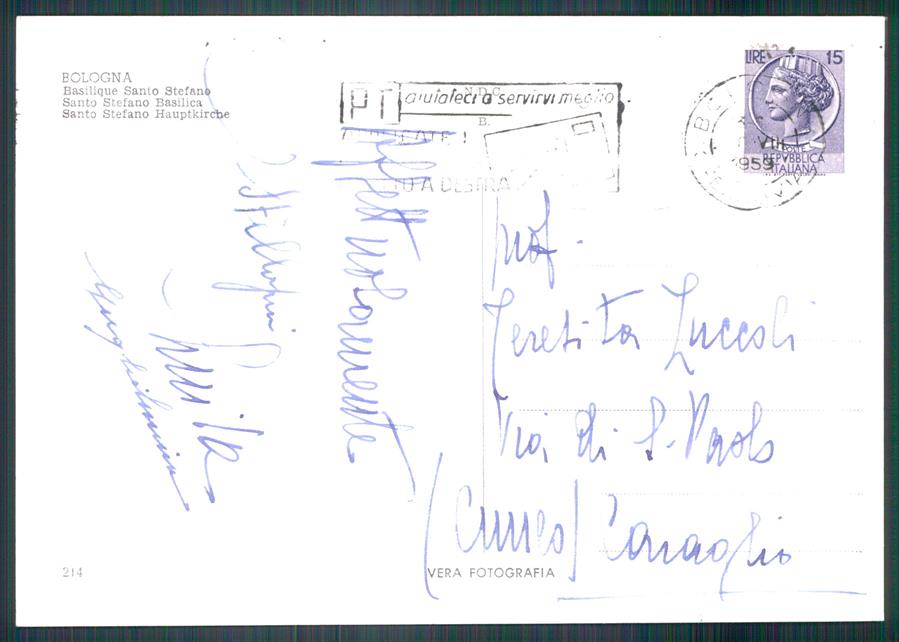 BOLOGNA
Basilique Santo Stefano
Santo Stefano Basilica
Santo Stefano Hauptkirche
PT aiutateci a servirvi meglio
N.D.C.
B.
A DESTRA
LIRE 15
POSTE
REPVBBLICA
ITALIANA
VIII
1959
Rispettosamente
Prof.
Teresita Luccoli
Via di S. Paolo
(Cuneo) Caraglio
214
VERA FOTOGRAFIA